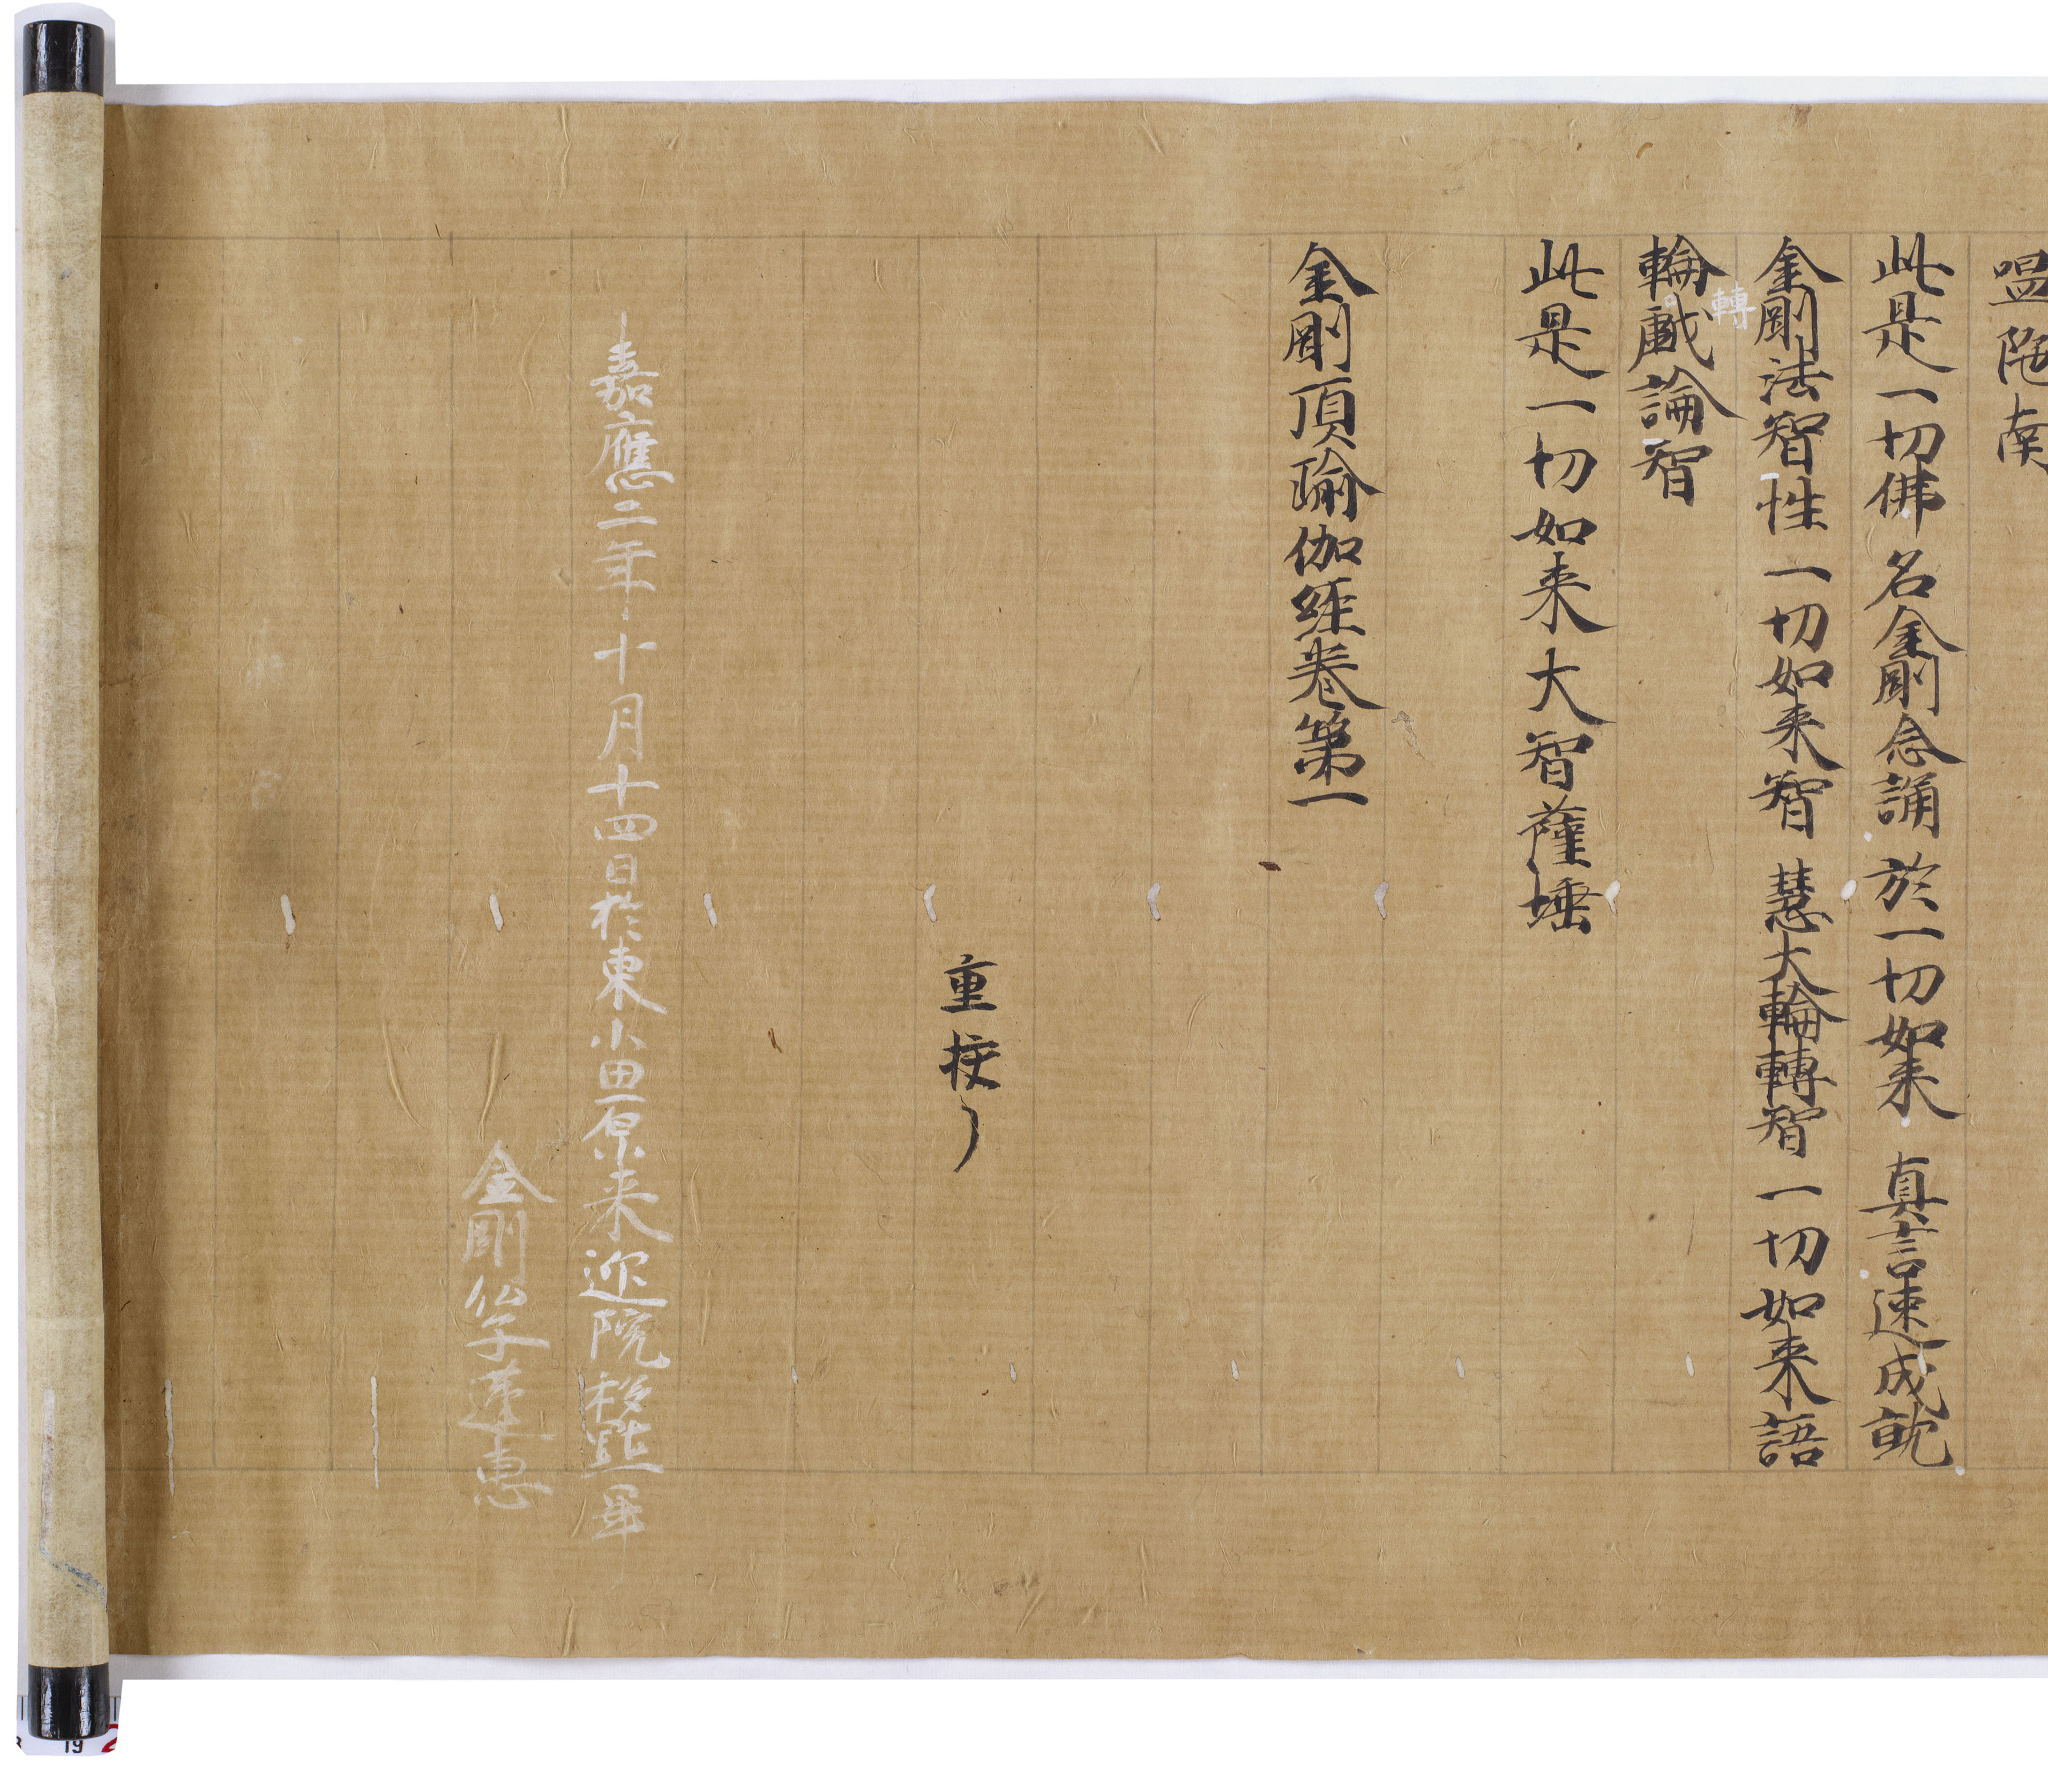 嗢陁南
此是一切佛名金剛念誦於一切如来真言速成就
金剛法智性一切如来智慧大輪轉智一切如来語
轉
輪戯論智
此是一切如来大智薩埵
金剛頂瑜伽経卷第一
重挍了
嘉應二年十月十四日於東小田原来迎院移點畢
金剛仏子蓮惠